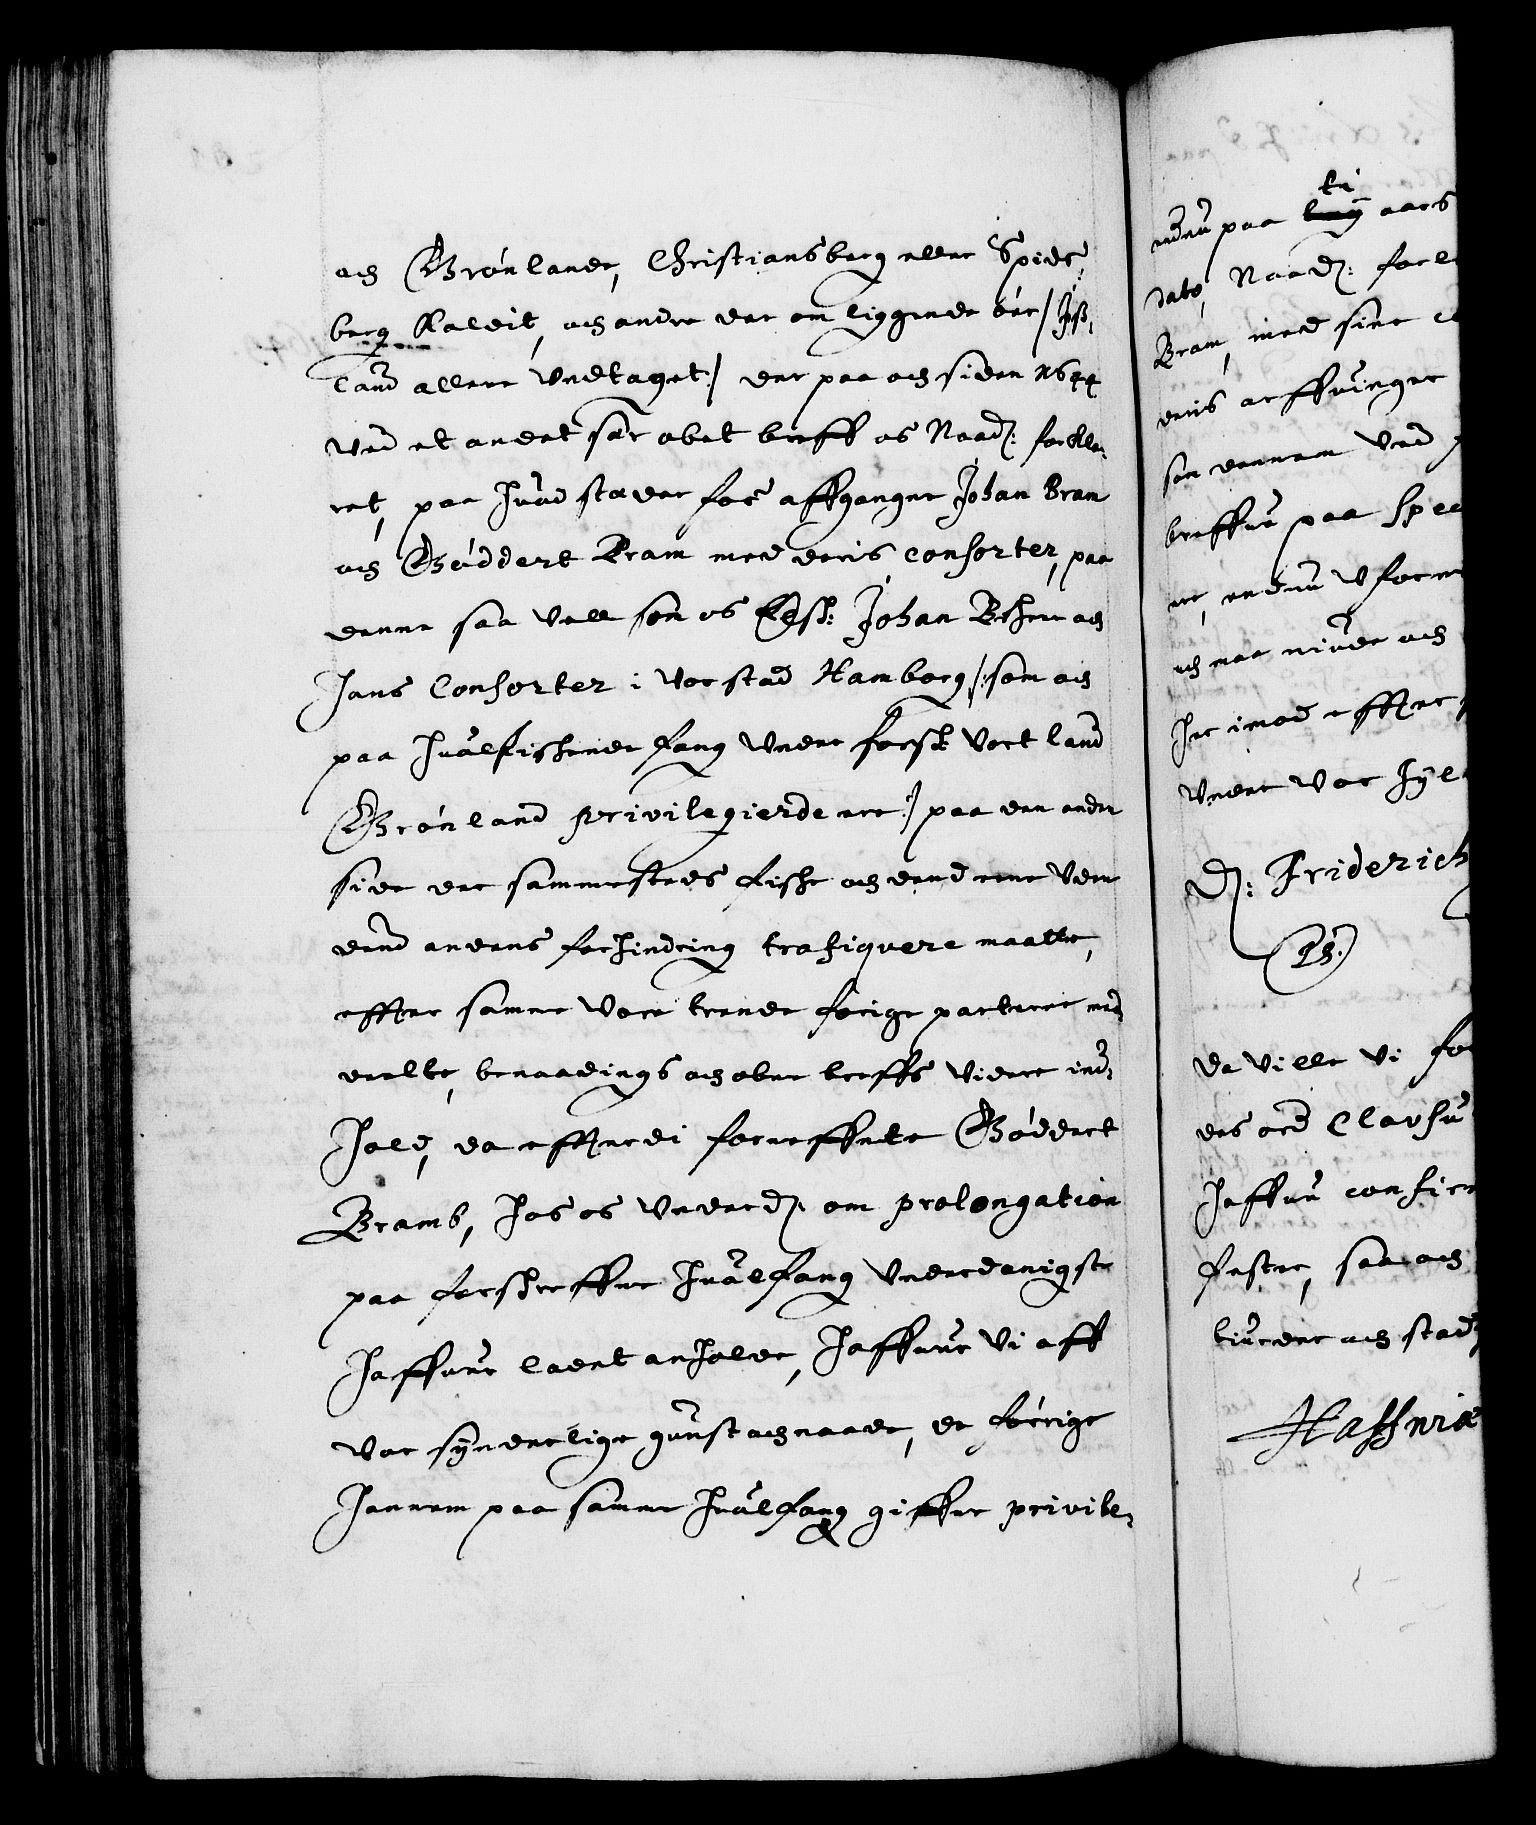 och Grönlande, Christiansberg eller Spids,
berg kaldit, och andre der om liggende öer /: Iß,
land allene Undtaget :/ der paa och siden 1644
Ved et andet sær obet breff os Naadz: forkla,
ret, paa huad steder for affgangne Johan Bram
och Göddert Bram med deris consorter, paa
denne saa vell som os Elsk: Johan Been och
hans Consorter i Vor stad Hamborg /: som och
paa hualfishende fang under forsk Vort land
Grönland privilegierde ere :/ paa den anden
side der sammesteds fishe och dend ene uden
dend andens forhindring trafiquere maatte,
effter samme Vore trende forige parterne med
deelte, benaadings och obne breffs videre ind,
hold, da effterdi forneffnte Göddert
Bramb, hos os underdz. om prolongation
paa forskreffne hualfang underdanigste
haffuer ladet anholde, haffuer Vi aff
vor synderlige gunst och naade, de förrige
hannem paa samme hualfang giffne privile,
endnu paa ti aars
dato, Naadz: forl
Bram, med sine c
deris arffuinger
som dennem Ved
breffue paa Spec
er, endnu uform
och maa niude och
her imod effter
under Vor hyl
Dz: Friderich
Rh.
da ville Vi for
des ord Clausu
haffuer confir
fester, saa och
tiuerer och stad
Haffniæ